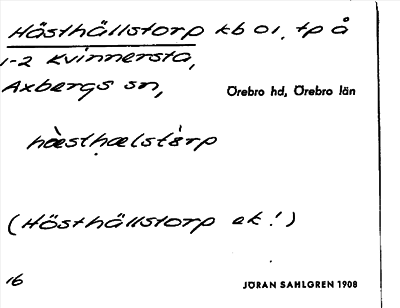 Hästhällstorp kb 01, tp å
1-2 Kvinnersta,
Axbergs sn,
Örebro hd, Örebro län
hæ̀sthælstårp
(Hösthällstorp ek!)
16
JÖRAN SAHLGREN 1908